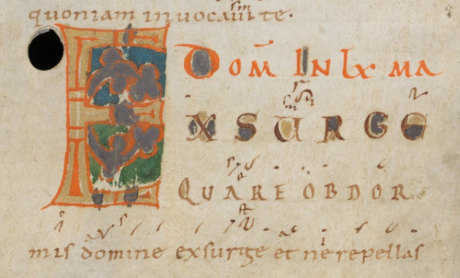 quoniam invocavi te.
Dom In lx ma
EXSURGE
QUARE OBDOR
mis domine exsurge et ne repellas